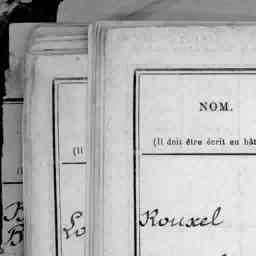 NOM.
(Il doit être écrit en bât
(Il
Rouxel
Lo
B
B